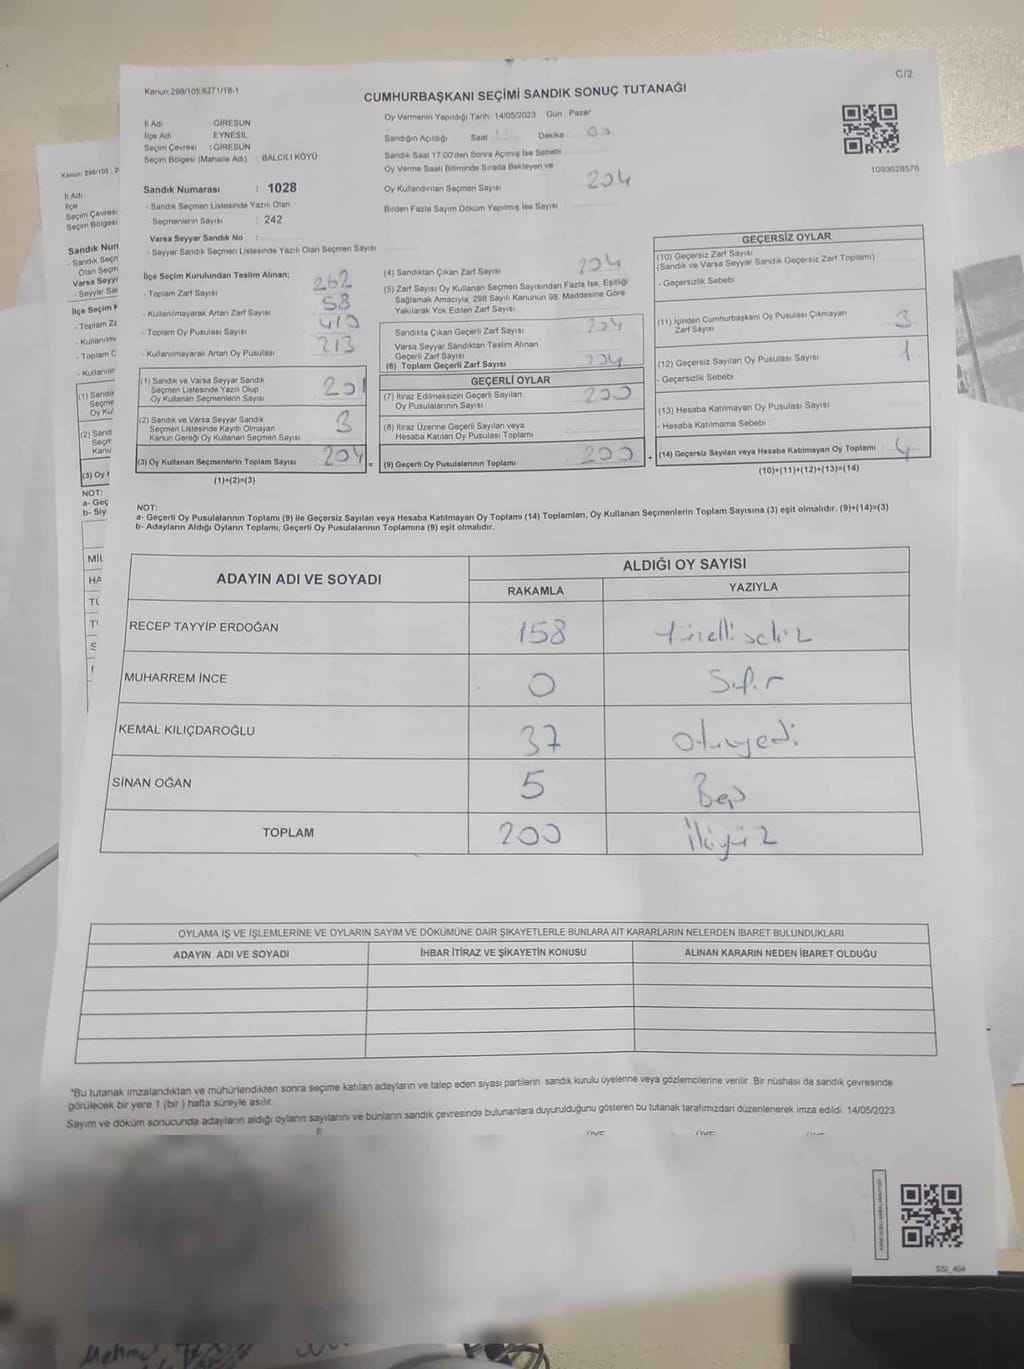 C/2
Kanun:298/105;6271/18-1
CUMHURBAŞKANI SEÇİMİ SANDIK SONUÇ TUTANAĞI
İl Adı : GİRESUN
İlçe Adı : EYNESİL
Seçim Çevresi : GİRESUN
Seçim Bölgesi (Mahalle Adı) : BALCILI KÖYÜ
Sandık Numarası : 1028
- Sandık Seçmen Listesinde Yazılı Olan
Seçmenlerin Sayısı : 242
Varsa Seyyar Sandık No :
- Seyyar Sandık Seçmen Listesinde Yazılı Olan Seçmen Sayısı
Oy Vermenin Yapıldığı Tarih :14/05/2023 Gün : Pazar
Sandığın Açıldığı Saat Dakika
Sandık Saat 17:00'den Sonra Açımış İse Sebebi
Oy Verme Saati Bitiminde Sırada Bekleyen ve
Oy Kullandırılan Seçmen Sayısı 204
Birden Fazla Sayım Döküm Yapılmış İse Sayısı
1093628576
İlçe Seçim Kurulundan Teslim Alınan;
- Toplam Zarf Sayısı 262
- Kullanılmayarak Artan Zarf Sayısı 58
- Toplam Oy Pusulası Sayısı
- Kullanılmayarak Artan Oy Pusulası 213
(1) Sandık ve Varsa Seyyar Sandık
Seçmen Listesinde Yazılı Olup
Oy Kullanan Seçmenlerin Sayısı 201
(2) Sandık ve Varsa Seyyar Sandık
Seçmen Listesinde Kayıtlı Olmayan
Kanun Gereği Oy Kullanan Seçmen Sayısı 3
(3) Oy Kullanan Seçmenlerin Toplam Sayısı 204 =
(1)+(2)=(3)
(4) Sandıktan Çıkan Zarf Sayısı 204
(5) Zarf Sayısı Oy Kullanan Seçmen Sayısından Fazla İse, Eşitliği
Sağlamak Amacıyla, 298 Sayılı Kanunun 98. Maddesine Göre
Yakılarak Yok Edilen Zarf Sayısı
Sandıkta Çıkan Geçerli Zarf Sayısı 204
Varsa Seyyar Sandıktan Teslim Alınan
Geçerli Zarf Sayısı
(6) Toplam Geçerli Zarf Sayısı 204
GEÇERLİ OYLAR
(7) İtiraz Edilmeksizin Geçerli Sayılan
Oy Pusulalarının Sayısı 200
(8) İtiraz Üzerine Geçerli Sayılan veya
Hesaba Katılan Oy Pusulası Toplamı
(9) Geçerli Oy Pusulalarının Toplamı 200 +
GEÇERSİZ OYLAR
(10) Geçersiz Zarf Sayısı
(Sandık ve Varsa Seyyar Sandık Geçersiz Zarf Toplamı)
- Geçersizlik Sebebi
(11) İçinden Cumhurbaşkanı Oy Pusulası Çıkmayan
Zarf Sayısı 3
(12) Geçersiz Sayılan Oy Pusulası Sayısı 1
- Geçersizlik Sebebi
(13) Hesaba Katılmayan Oy Pusulası Sayısı
- Hesaba Katılmama Sebebi
(14) Geçersiz Sayılan veya Hesaba Katılmayan Oy Toplamı 4
(10)+(11)+(12)+(13)=(14)
NOT:
a- Geçerli Oy Pusulalarının Toplamı (9) ile Geçersiz Sayılan veya Hesaba Katılmayan Oy Toplamı (14) Toplamları, Oy Kullanan Seçmenlerin Toplam Sayısına (3) eşit olmalıdır. (9)+(14)=(3)
b- Adayların Aldığı Oyların Toplamı, Geçerli Oy Pusulalarının Toplamına (9) eşit olmalıdır.
ADAYIN ADI VE SOYADI ALDIĞI OY SAYISI
RAKAMLA YAZIYLA
RECEP TAYYİP ERDOĞAN 158 Yüzelli sekiz
MUHARREM İNCE 0 Sıfır
KEMAL KILIÇDAROĞLU 37 Otuzyedi
SİNAN OĞAN 5 Beş
TOPLAM 200 İkiyüz
OYLAMA İŞ VE İŞLEMLERİNE VE OYLARIN SAYIM VE DÖKÜMÜNE DAİR ŞİKAYETLERLE BUNLARA AİT KARARLARIN NELERDEN İBARET BULUNDUKLARI
ADAYIN ADI VE SOYADI İHBAR İTİRAZ VE ŞİKAYETİN KONUSU ALINAN KARARIN NEDEN İBARET OLDUĞU
*Bu tutanak imzalandıktan ve mühürlendikten sonra seçime katılan adayların ve talep eden siyasi partilerin sandık kurulu üyelerine veya gözlemcilerine verilir. Bir nüshası da sandık çevresinde
görülecek bir yere 1 (bir) hafta süreyle asılır.
Sayım ve döküm sonucunda adayların aldığı oyların sayılarını ve bunların sandık çevresinde bulunanlara duyurulduğunu gösteren bu tutanak tarafımızdan düzenlenerek imza edildi. 14/05/2023
SSI_404